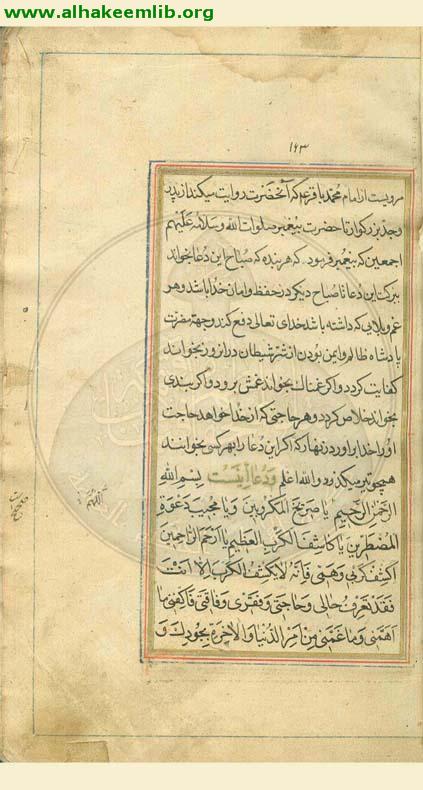 www.alhakeemlib.org
۱۶۳
مرویست از امام محمد باقر ع که آنحضرت روایت میکند از پدر
و جد بزرکوار تا حضرت پیغمبر صلوات الله وسلامه علیهم
اجمعین که پیغمبر فرمود که هر بنده که صباح این دعا بخواند
ببرکت این دعا تا صباح دیکر در حفظ و امان خدا باشد و هر
غم و بلایی که داشته باشد خدای تعالی دفع کند و جهة مضرت
پادشاه ظالم و ایمن بودن از شر شیطان در انروز بخوانند
کفایت کردد و اکر غمناک بخواند غمش برود و اکر بندی
بخواند خلاص کردد و هر حاجتی که از خدا خواهد حاجت
او را خدا براورد زینهار که اکر این دعا را بهر کسی بخوانند
همچو تیر میکذرد والله اعلم ودعا اینست بسم الله
الرحمن الرحیم یا صریخ المکروبین و یا مجیب دعوة
المضطرین یا کاشف الکرب العظیم یا ارحم الراحمین
اکشف کربی وهمی فانه لا یکشف الکرب الا انت
فقد تعرف حالی وحاجتی وفقری وفاقتی فاکفنی ما
اهمنی وما غمنی من امر الدنیا والاخرة بجودک و